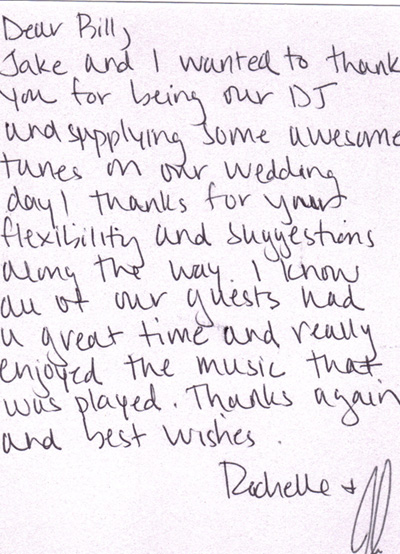 Dear Bill,
Jake and I wanted to thank
you for being our DJ
and supplying some awesome
tunes on our wedding
day! thanks for your
flexibility and suggestions
along the way. I know
all of our guests had
a great time and really
enjoyed the music that
was played. Thanks again
and best wishes.
Rochelle +